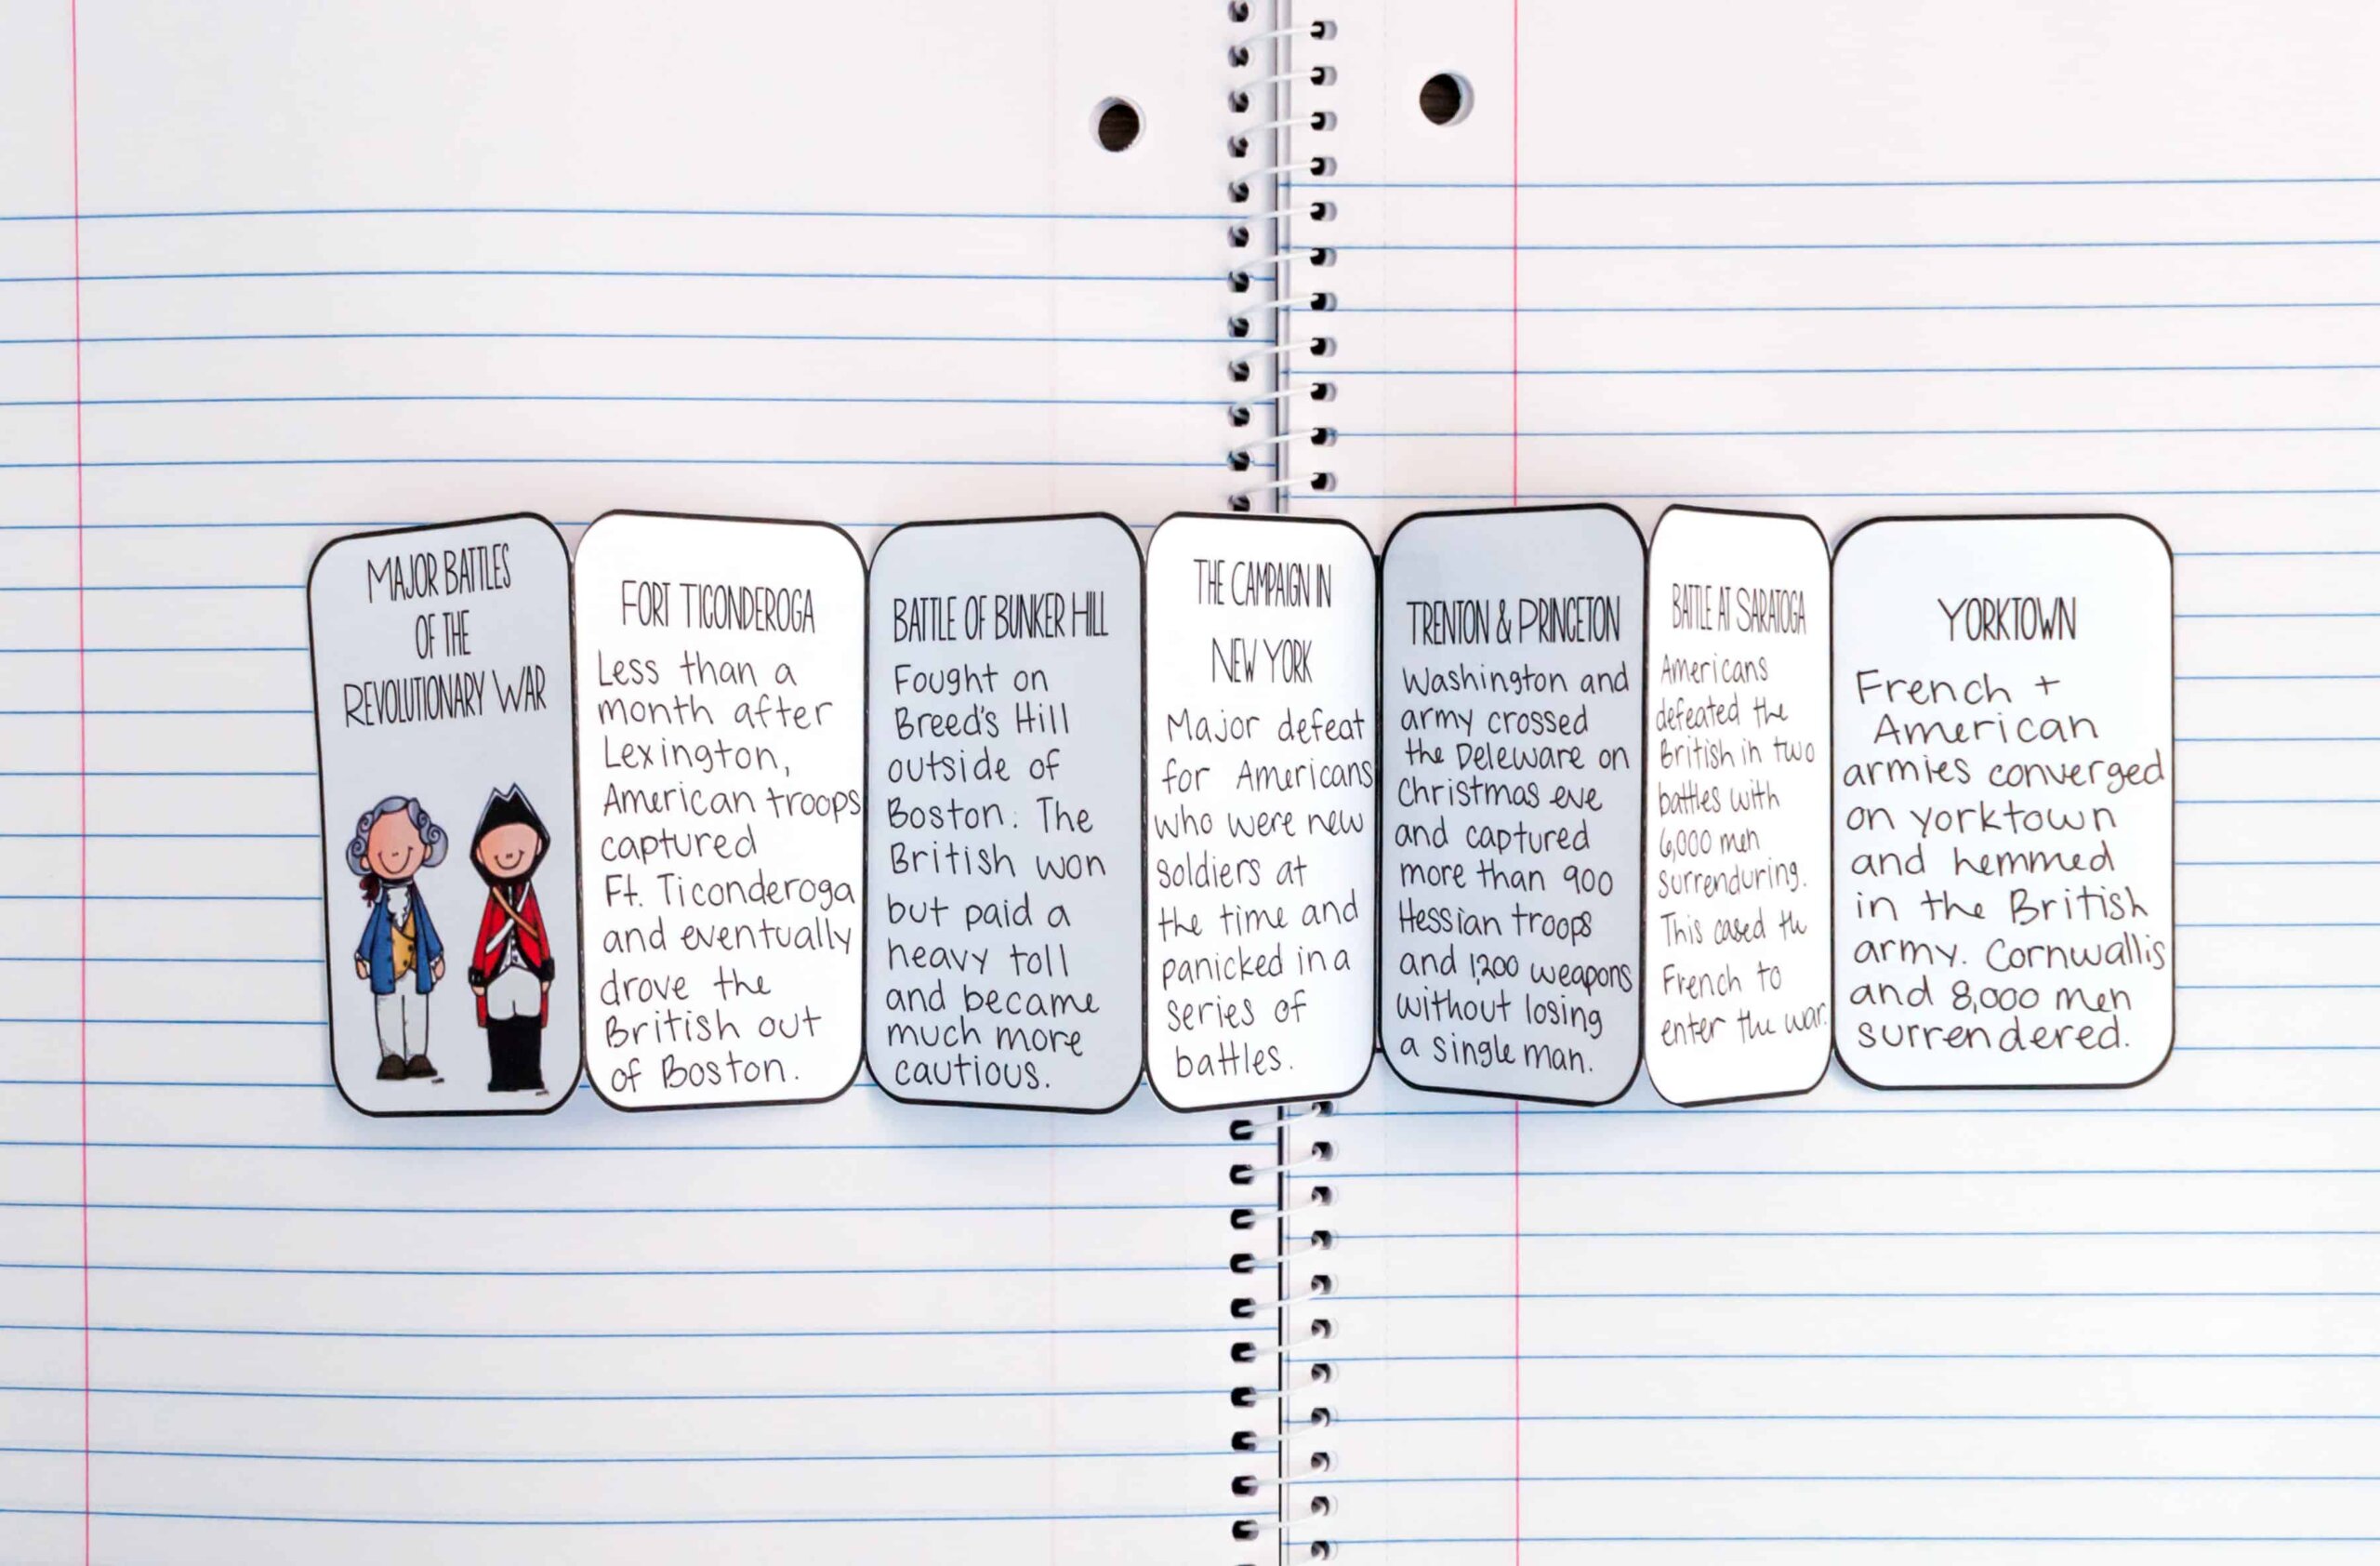 MAJOR BATTLES
OF THE
REVOLUTIONARY WAR
FORT TICONDEROGA
Less than a
month after
Lexington,
American troops
captured
Ft. Ticonderoga
and eventually
drove the
British out
of Boston.
BATTLE OF BUNKER HILL
Fought on
Breed's Hill
outside of
Boston. The
British won
but paid a
heavy toll
and became
much more
cautious.
THE CAMPAIGN IN
NEW YORK
Major defeat
for Americans
who were new
soldiers at
the time and
panicked in a
series of
battles.
TRENTON & PRINCETON
Washington and
army crossed
the Deleware on
Christmas eve
and captured
more than 900
Hessian troops
and 1,200 weapons
without losing
a single man.
BATTLE AT SARATOGA
Americans
defeated the
British in two
battles with
6,000 men
surrenduring.
This cased the
French to
enter the war.
YORKTOWN
French +
American
armies converged
on yorktown
and hemmed
in the British
army. Cornwallis
and 8,000 men
surrendered.